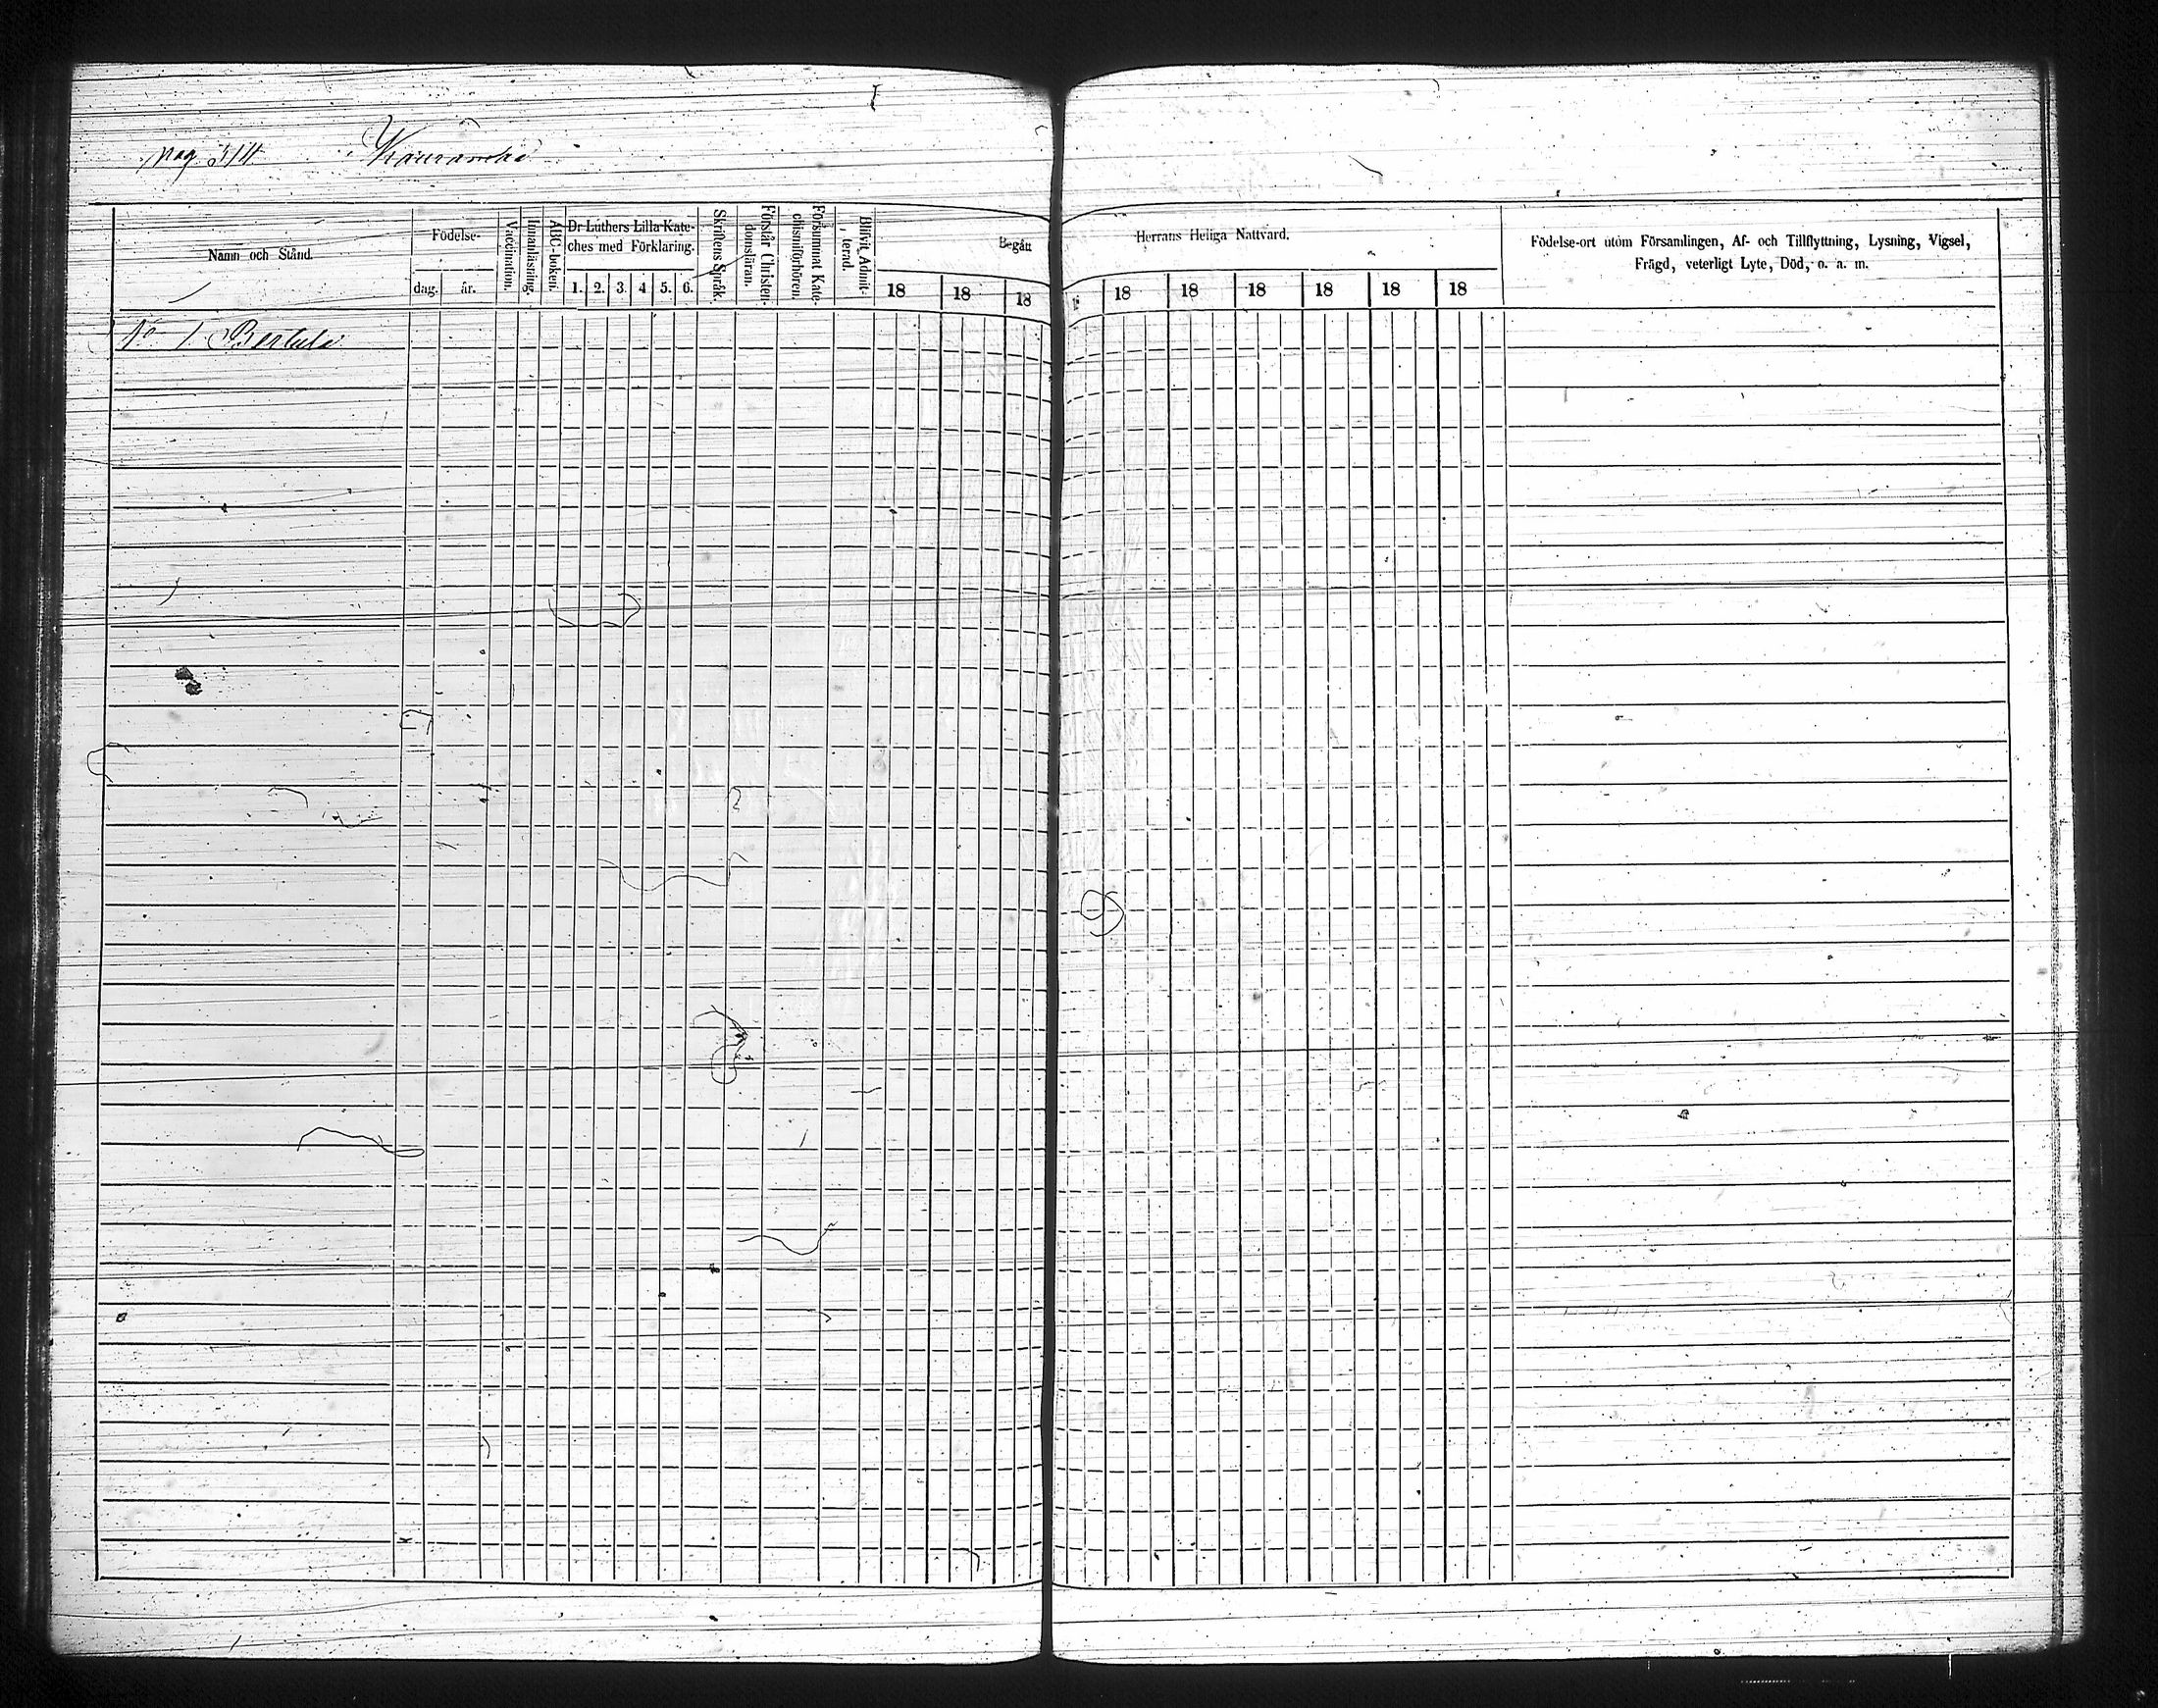 pag
Namn och Stånd.
Födelse-
dag.
år.
Vaccination.
Innanläsning.
ABC-boken.
Dr Luthers Lilla Kate-
ches med Förklaring.
1. 2. 3. 4 5. 6.
Skriftens Språk.
Förstår Christen-
domsläran.
Försummat Kate-
chismiförhören.
Blifvit Admit-
terad.
Begått
18 18 18
Herrans Heliga Nattvard.
18 18 18 18 18 18 18
Födelse-ort utom Församlingen, Af- och Tillflyttning, Lysning, Vigsel,
Frägd, veterligt Lyte, Död, o. a. m.
No 1 Bertula